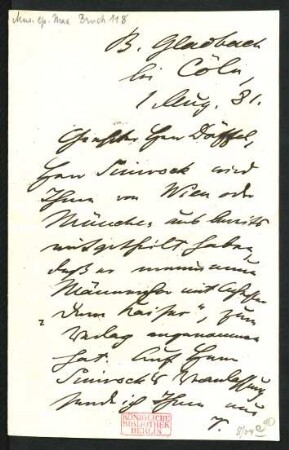 Mus. ep. Max Bruch 118
B. Gladbach
bei Cöln,
1 Aug. 81.
Geehrter Herr Dörffel,
Herr Simrock wird
Ihnen von Wien oder
München aus bereits
mitgetheilt haben,
daß er
Männerchor mit Orchester
"Dem Kaiser", zum
Verlag angenommen
hat. Auf Herrn
Simrock's Veranlassung
sende ich Ihnen nun
KÖNIGLICHE
BIBLIOTHEK
BERLIN